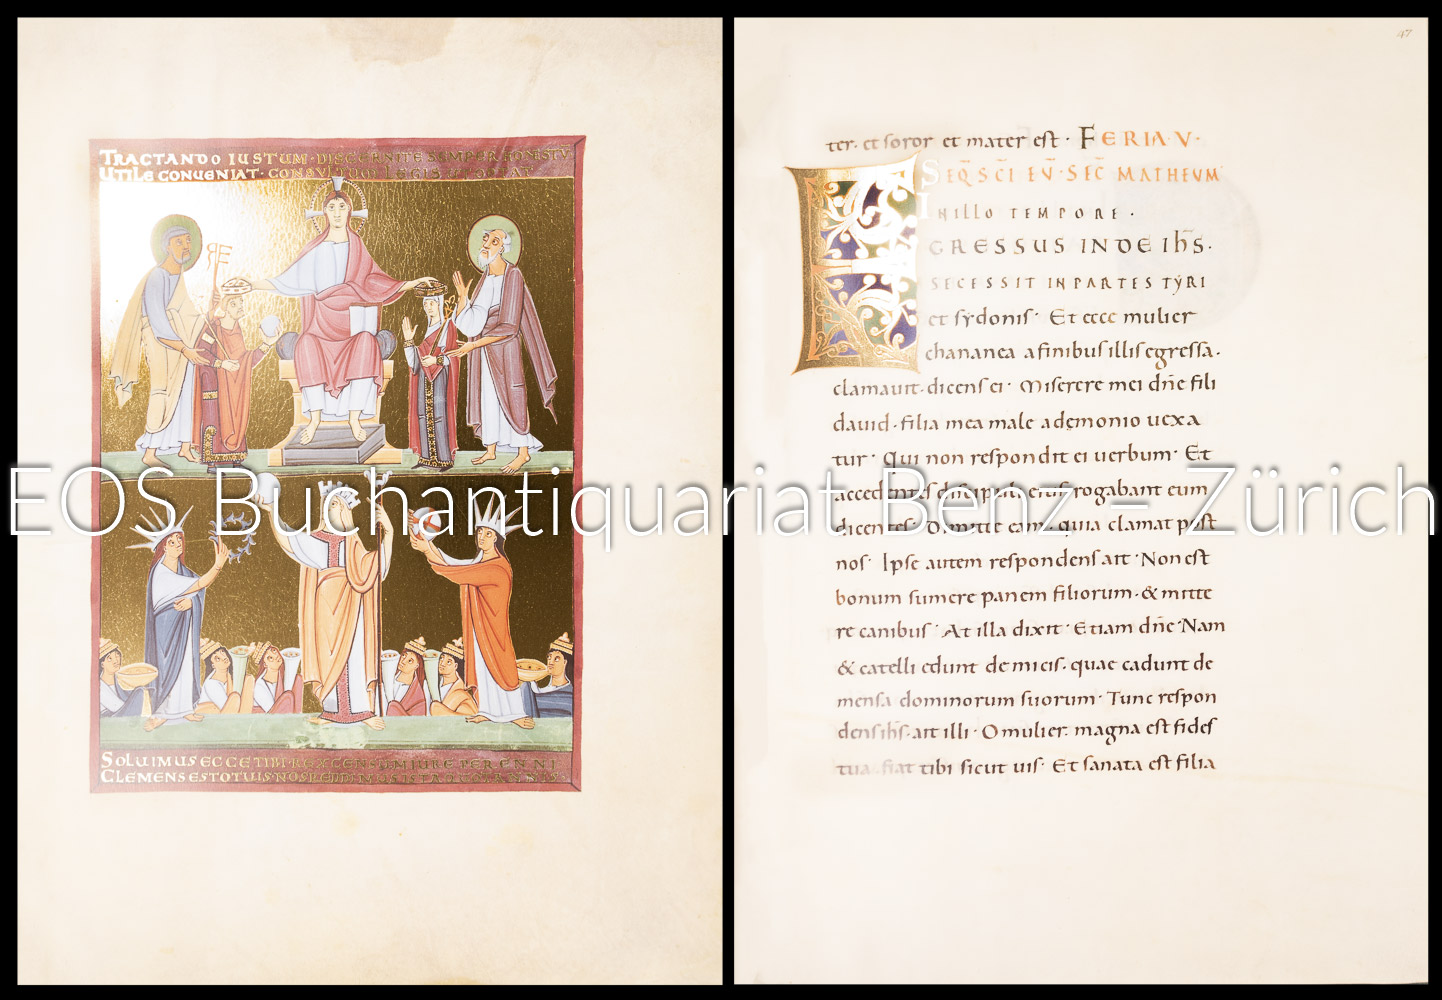 TRACTANDO IUSTUM · DISCERNITE SEMPER HONESTŪ
UTILE CONVENIAT · CONSULTUM LEGIS
SOLVIMUS ECCE TIBI REX CENSUM IURE PERENNI
CLEMENS ESTO TUIS NOS REDDIMUS ISTA QUOTANNIS
47
ter · et soror et mater est · FERIA · V ·
SEQ̄ SC̄I EṼ · SEC̄ MATHEUM
IN ILLO TEMPORE ·
EGRESSUS INDE IH̄S ·
SECESSIT IN PARTES TẎRI
et sẏdonis · Et ecce mulier
chananea a finibus illis egressa ·
clamauit · dicens ei · Miserere mei dn̄e fili
dauid · filia mea male a dęmonio uexa
tur · Qui non respondit ei uerbum · Et
accedentes discipuli eius rogabant eum
dicentes · Dimitte eam · quia clamat post
nos · Ipse autem respondens ait · Non est
bonum sumere panem filiorum · & mitte
re canibus · At illa dixit · Etiam dn̄e · Nam
& catelli edunt de micis · quae cadunt de
mensa dominorum suorum · Tunc respon
dens ih̄s · ait illi · O mulier magna est fides
tua · fiat tibi sicut uis · Et sanata est filia
EOS Buchantiquariat Benz - Zürich